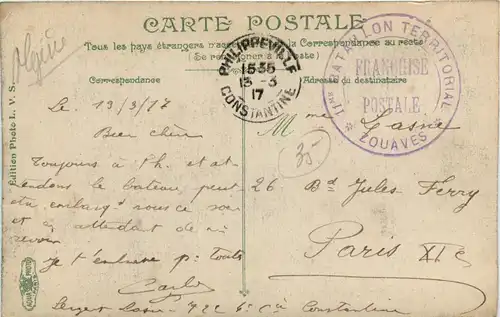 Algérie
CARTE POSTALE
Tous les pays étrangers n'acceptent la Correspondance au recto
(Se renseigner à la Poste)
Correspondance
Adresse du destinataire
PHILIPPEVILLE
15 35
13 - 3
17
CONSTANTINE
11me BATAILLON TERRITORIAL
FRANCHISE
POSTALE
* ZOUAVES *
Le 13/3/17
Bien chère
Toujours à Ph. et at-
tendons le bateau peut
être embarq nous ce soir
et en attendant de vs
revoir
Je t'embrasse p. Touts
Sergent 7 22 6e Cie Constantine
Mme Lasne
35
26 Bd Jules Ferry
Paris XIe
Edition Photo L. V. S.